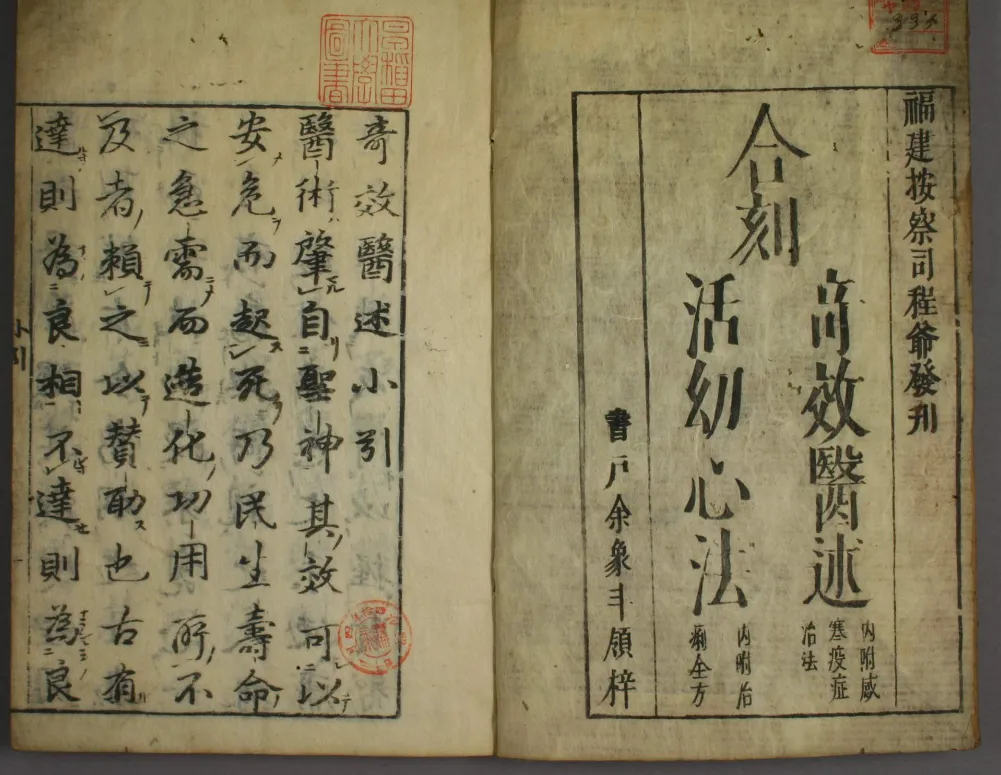 福建按察司程爺發刊
合刻
奇效醫述
内附感
寒疫症
治法
活幼心法
内附治
痢全方
書戸余象斗領梓
早稻田
大學
圖書
奇效醫述小引
醫術肇自聖神其效可以
安危而起死乃民生壽命
之急需而造化功用所不
及者賴之以贊助也古有
達則為良相不達則為良
小引